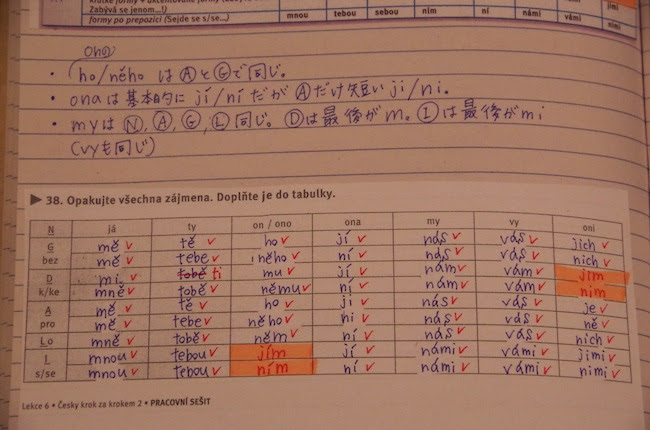 krátké formy + akcentované formy
Zabývá se jenom...!) jimi
formy po prepozici (Sejde se s/se...) mnou tebou sebou ním ní námi vámi nimi
ono
・ho/něho は Ⓐ と Ⓖ で同じ。
・onaは基本的に jí/ní だが Ⓐ だけ短い ji/ni.
・myは Ⓝ, Ⓐ, Ⓖ, Ⓛ 同じ。Ⓓ は最後がm。Ⓘ は最後がmi
(vyも同じ)
▶ 38. Opakujte všechna zájmena. Doplňte je do tabulky.
N já ty on / ono ona my vy oni
G mě tě ho jí nás vás jich
bez mě tebe něho ní nás vás nich
D mi tobě ti mu jí nám vám jim
k/ke mně tobě němu ní nám vám nim
A mě tě ho ji nás vás je
pro mě tebe něho ni nás vás ně
Lo mně tobě něm ní nás vás nich
I mnou tebou jím jí námi vámi jimi
s/se mnou tebou ním ní námi vámi nimi
Lekce 6 • Česky krok za krokem 2 • PRACOVNÍ SEŠIT